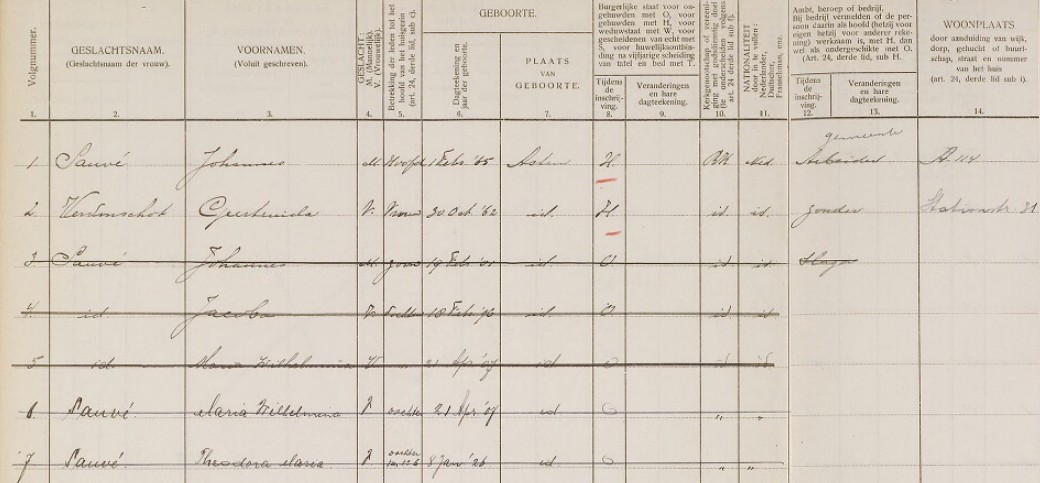 Volgnummer.
1.
GESLACHTSNAAM.
(Geslachtsnaam der vrouw).
2.
VOORNAMEN.
(Voluit geschreven).
3.
GESLACHT:
M. (Mannelijk).
V. (Vrouwelijk).
4.
Betrekking der leden tot het
hoofd van het huisgezin
(art. 24, derde lid, sub c).
5.
GEBOORTE.
Dagteekening en
jaar der geboorte.
6.
PLAATS
VAN
GEBOORTE.
7.
Burgerlijke staat voor on-
gehuwden met O, voor
gehuwden met H, voor
weduwstaat met W, voor
gescheidenen van echt met
S, voor huwelijksontbin-
ding na vijfjarige scheiding
van tafel en bed met T.
Tijdens
de
inschrij-
ving.
8.
Veranderingen
en hare
dagteekening.
9.
Kerkgenootschap of vereeni-
ging met godsdienstig doel
(te onderscheiden volgens
art. 24 derde lid sub f).
10.
NATIONALITEIT
door in te vullen:
Nederlander,
Duitscher,
Franschman, enz.
11.
Ambt, beroep of bedrijf.
Bij bedrijf vermelden of de per-
soon daarin als hoofd (hetzij voor
eigen hetzij voor anderer reke-
ning) werkzaam is, met H. dan
wel als ondergeschikte met O.
(Art. 24, derde lid, sub H.
Tijdens
de
inschrij-
ving.
12.
Veranderingen
en hare
dagteekening.
13.
WOONPLAATS
door aanduiding van wijk,
dorp, gehucht of buurt-
schap, straat en nummer
van het huis
(art. 24, derde lid, sub i).
14.
gemeente
1 Sauvé Johannes M. Hoofd 1 Febr. '65 Asten H. RK Ned. Arbeider A. 114
2 Verdonschot Geertruida V. Vrouw 30 Oct. '62 id. H id. id. zonder Stationstr. 31
3 Sauvé Johannes M. zoon 19 Febr. id. O id. id.
4. id. Jacoba V. 18 Febr. id. O id. id.
5 id. Maria Wilhelmina V. " 21 Apr. '07 id. O id id.
6 Sauvé Maria Wilhelmina V dochter 21 Apr. '07 id. O " "
7 Sauvé. Theodora Maria V dochter 8 Jan' 26 id. O " "